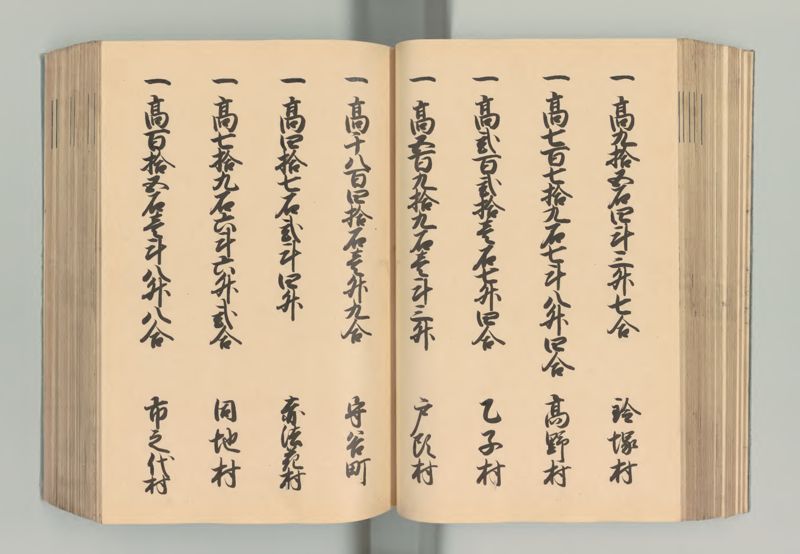 一 高九拾五石四斗三升七合 鈴塚村
一 高七百七拾九石七斗八升四合 高野村
一 高弐百弐拾壱石七升四合 乙子村
一 高五百九拾九石壱斗三升 戸頭村
一 高千八百四拾石壱升九合 守谷町
一 高四拾七石弐斗四升 赤法花村
一 高七拾九石六斗六升弐合 同地村
一 高百拾五石壱斗八升八合 市之代村